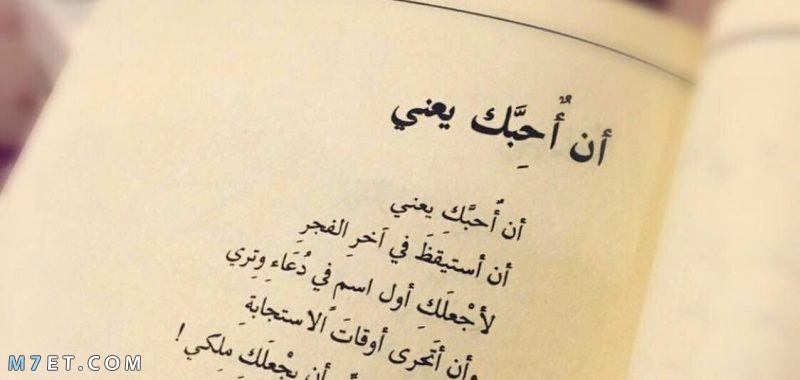 أن أُحِبَّك يعني
أن أُحبَّكِ يعني
أن أستيقظَ في آخرِ الفجرِ
لأجْعلَكِ أول اسم في دُعَاءِ وِتِري
وأن أتحرى أوقاتَ الاستجابةِ
أن يجْعلَك مِلكي!
M7ET.COM